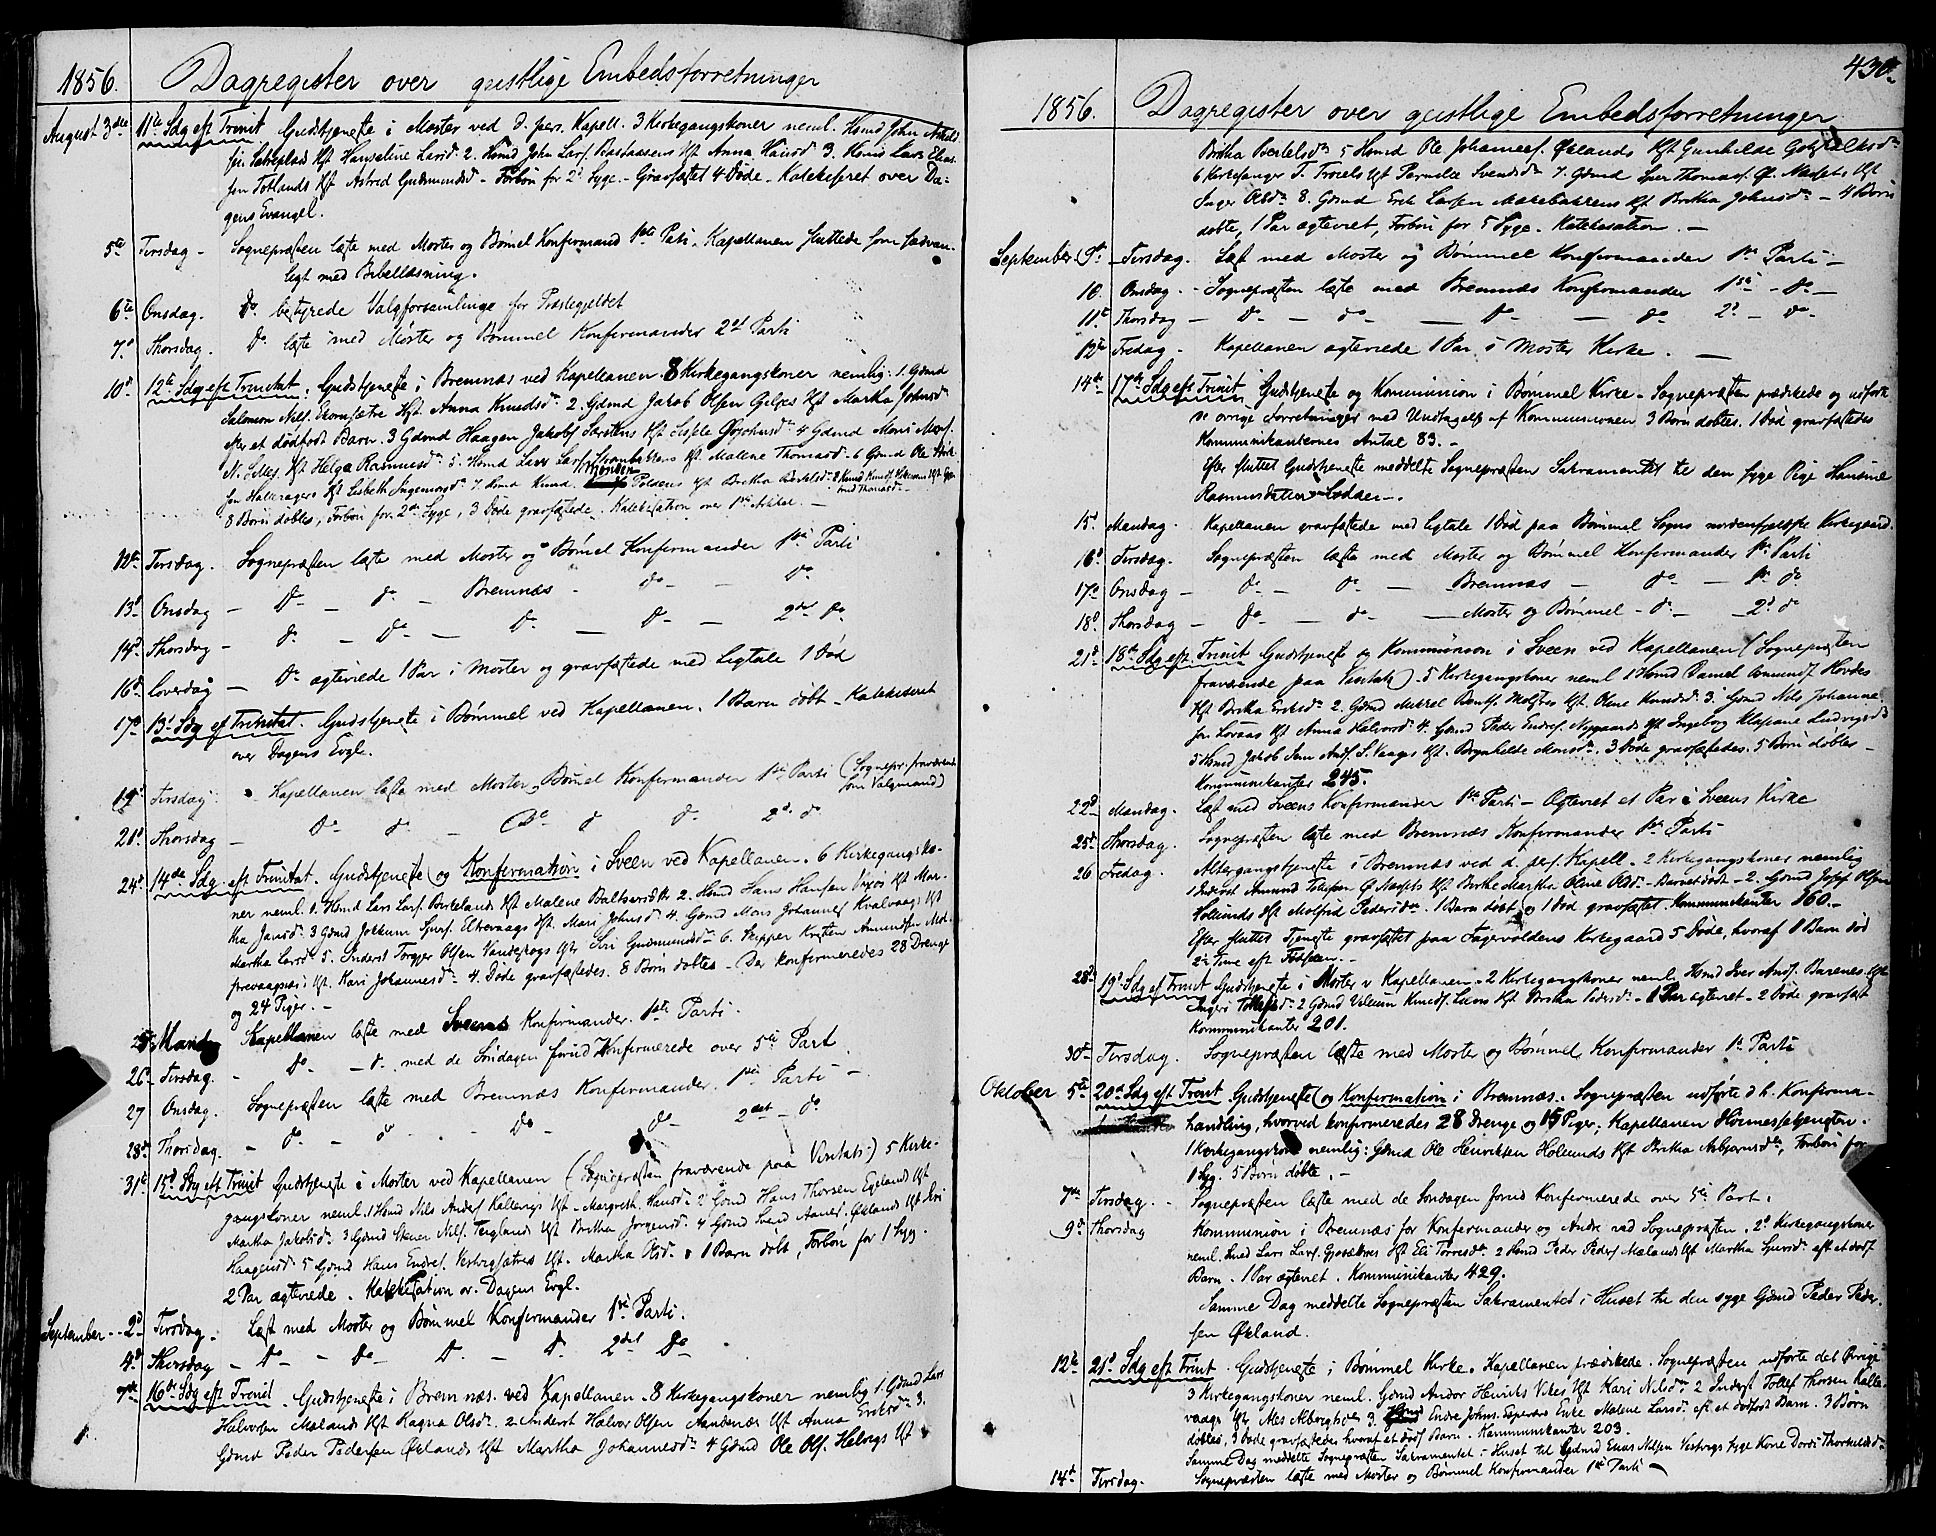 1856. Dagregister over geistlige Embedsforretninger
August 3die 11te Sdg eft Trinit Gudstjeneste i Moster ved d. pers. Kapell. 3 Kirkegangskoner neml. Hsmd John
Kft Hanseline Larsd. 2. Hsmd John Lars. Kft Anna Hansd. 3. Hsmd Lars Elias-
sen Totlands Kft Astrid Gudmundsd - Forbøn for 2d Syge. - Gravfæstet 4 Døde. Katekiseret over Da-
gens Evangel.
5te Tirsdag - Sognepræsten læste med Moster og Bømel Konfirmand 1ste Parti. Kapellanen sluttede som sædvan-
ligt med Bibellæsning.
6te Onsdag. Do bestyrede Valgforsamlinge for Præstegjeldet
7de Thorsdag. Do læste med Moster og Bømmel Konfirmander 2d Parti
10d 12te Sdg eft Trinitat. Gudstjeneste i Bremnæs ved Kapellanen. 8 Kirkegangskoner nemlig: 1. Gdmd
Salomon Nils. Kft Anna Knudsd. 2. Gdmd Jakob Olsen Kft Marta Johnsd
efter et dødfødt Barn. 3 Gdmd Haagen Jakobs. Kft 4 Gdmd Mons Mons.
Kft Helga Rasmusd. 5. Hsmd Lars Lars. Kft. Malene Thomasd. 6 Gdmd Ole
Kft Lisbeth Ingemorsd. 7. Knud Kft Britha Bertelsd. 8 Knud Knuds.
8 Børn døbtes, Forbøn for 2de Syge, 3 Døde gravfæstede. Katekisation over 1ste Artikel. -
12te Tirsdag. Sognepræsten læste med Moster og Bømel Konfirmander 1ste Parti
13d Onsdag - Do - do - Bremnæs - do - - Do
14d Thorsdag - do - Do - Do - Do - 2det Do
16d Løverdag - Do ægteviede 1 Par i Moster og gravfæstede med Ligtale 1 Død
17d 13d Sdg eft Trinitat. Gudstjeneste i Bømmel ved Kapellanen. 1 Barn døbt - Katekiseret
over Dagens Evgl.
19d Tirsdag. Kapellanen læste med Moster, Bømel Konfirmander 1ste Parti (Sognepr. fraværende
som Valgmand)
21d Thorsdag - Do do - Do do do 2d do
24d 14de Sdg eft Trinitat. Gudstjeneste (og Konfirmation i Sveen ved Kapellanen. 6 Kirkegangsko-
ner neml. 1. Hsmd Lars Lars. Birkelands Kft Malene Baltsersdtr 2. Hsmd Hans Hansen Kft Mar-
tha Jansd. 3 Gdmd Jokkum Sjurs. Kft. Mari Johnsd. 4. Gdmd Mons Johannes. Kvalvaags Kft
Martha Larsd. 5. Inderst Torger Olsen Kft Siri Gudmundsd. 6. Skipper Kristen Amundsen
Kft. Kari Johannesd. 4. Døde gravfæstedes. 8 Børn døbtes - Der konfirmeredes 28 Drenge
og 24 Piger. -
25 Mand Kapellanen læste med Sveens Konfirmander. 1ste Parti.
26 Tirsdag. - Do - d. med de Søndagen forud Konfirmerede over 5te Part.
27 Onsdag. Sognepræsten læste med Bremnæs Konfirmander. 1ste Parti -
28d Thorsdag. - do - do - Do Do 2det - do
31te 15d Sdg eft Trinit Gudstjeneste i Moster ved Kapellanen (Sognepræsten fraværende paa Visitats) 5 Kirke-
gangskoner neml. 1 Hsmd Nils Anders. Kft - Margreth Hansd. 2 Gdmd Hans Thorsen Egeland Kft
Martha Jakobsd. 3 Gdmd Steiner Nils. Kft Britha Jørgensd. 4 Gdmd Svend Aanes. Økland Kft Siri
Haagensd. 5 Gdmd Hans Endres. Kft. Martha Olsd. 1 Barn døbt, Forbøn for 1 Syg.
2 Par ægteviede. Katekisation ov. Dagens Evgl.
September - 2d Tirsdag. Læst med Moster og Bømmel Konfirmander 1ste Parti.
4d Thorsdag - Do - Do - D. - D. 2det Do
7de 16de Sdg eft Trinit. Gudstjeneste i Bremnæs. ved Kapellanen. 8 Kirkegangskoner nemlig 1. Gdmd Lars
Halvorsen Mælands Kft Ragna Olsd. 2. Inderst Halvor Olsen Kft Anna Eriksd. 3.
Gdmd Peder Pedersen Øklands Kft Martha Johannesd. 4 Gdmd Ole Ols. Kft
430
1856. Dagregister over geistlige Embedsforretninger.
Britha Bertelsd. 5 Hsmd Ole Johannes. Øklands Kft Gunhilde
6 Kirkesanger T. Troels Kft Pernille Svendsd. 7. Gdmd Iver Thomas. Kft
Inger Olsd. 8. Gdmd Erik Larsen Kft Britha Johnsd. - 4 Børn
døbte, 1 Par ægteviet, Forbøn for 5 Syge. Katekisation. -
September. 9d Tirsdag. Læst med Moster og Bømmel Konfirmander 1ste Parti -
10. Onsdag. - Sognepræsten læste med Bremnæs Konfirmander 1ste - do -
11te Thorsdag - Do - do - Do - do 2d - do
12te Fredag. Kapellanen ægteviede 1 Par i Moster Kirke. -
14de 17de Sdg eft Trinit Gudstjeneste og Kommunion i Bømmel Kirke. Sognepræsten prædikede og udførte
de øvrige Forretninger med Undtagelse af Kommunionen 3 Børn døbtes. 1 Død gravfæstedes
Kommunikanternes Antal 83. -
Efter sluttet Gudstjeneste meddelte Sognepræsten Sakramentet til den syge Pige Hansine
Rasmusdatter -
15d Mandag. Kapellanen gravfæstede med Ligtale 1 Død paa Bømmel Sogns nordenfjelske Kirkegaard.
16d Tirsdag. Sognepræsten læste med Moster og Bømmel Konfirmander 1ste Parti
17d Onsdag - Do - Do - Bremnæs - do - 1ste do
18d Thorsdag - Do - do - Moster og Bømmel - do - 2d do
21d 18de Sdg eft. Trinit Gudstjeneste og Kommunion i Sveen ved Kapellanen (Sognepræsten
fraværende paa Visitats) - 5 Kirkegangskoner neml 1 Hsmd Daniel Hovdes
Kft Britha Eriksd. 2. Gdmd Mikkel Kft. Oline Knudsd. 3. Gdmd Nils Johanne-
sen Kft Anna Halvorsd. 4. Gdmd Peder Endres. Nygaards Kft Ingeborg Ludvigsd.
5 Hsmd Jakob Kft. Brynhilde Monsd. 3 Døde gravfæstedes. 5 Børn døbtes -
Kommunikanter 245.
22d Mandag. Læst med Sveens Konfirmander 1ste Parti - Ægteviet et Par i Sveens Kirke
25de Thorsdag. Sognepræsten læste med Bremnæs Konfirmander 1ste Parti
26 Fredag. Altergangstjeneste i Bremnæs ved d. pers. Kapell. 2 Kirkegangskoner nemlig
1 Inderst Amund Kft Birthe Martha Oline Olsd. - Barnet dødt - 2. Gdmd Olsen
Hollunds Kft Molfrid Pedersd. 1 Barn døbt og 1 Død gravfæstet. Kommunikanter 360. -
Efter sluttet Tjeneste gravfæstet paa Fagervoldens Kirkegaard 5 Døde, hvoraf 1 Barn død
2d Time eft Fødselen. -
28d 19d Sdg ef Trinit Gudstjeneste i Moster v Kapellanen - 2 Kirkegangskoner neml. Hsmd Iver Ands. Kft
Ingeri 2 Gdmd Villum Knuds. Kft Britha Pedersd. - 1 Par ægteviet - 2 Døde gravfæst
Kommunikanter 201.
30te Tirsdag. Sognepræsten læste med Moster og Bømmel Konfirmander 1ste Parti
Oktober 5te 20de Sdg eft Trinit Gudstjeneste (og Konfirmation i Bremnæs. Sognepræsten udførte d. h. Konfirma-
handling, hvorved konfirmeredes 28 Drenge og 15 Piger; Kapellanen Høimessetjenesten.
1 Kirkegangskone nemlig: Gdmd Ole Henriksen Holunds Kft Britha Asbjørnsd, Forbøn for
1 Syg. 5 Børn døbte. -
7de Tirsdag. - Sognepræsten læste med de Søndagen forud Konfirmerede over 5te Part.
9d Thorsdag Kommunion i Bremnæs for Konfirmander og Andre ved Sognepræsten. 2d Kirkegangskoner
neml. Lars Lars. Kft Eli Torresd. 2 Hsmd Peder Peders. Mælands Kft Martha Sjursd. eft et dødf
Barn. 1 Par ægteviet. Kommunikanter 429.
Samme Dag meddelte Sognepræsten Sakramentet i Huset til den syge Gdmd Peder Peder-
sen Økland.
12te 21d Sdg eft Trinit. Gudstjeneste i Bømmel Kirke. Kapellanen prædikede. Sognepræsten udførte det Øvrige
3 Kirkegangskoner neml. Gdmd Andor Henriks. Kft Kari Nilsd. 2 Inderst Tollef Thorsen Kalle-
vaags Kft 3. Endre Johns. Enke Malene Larsd. eft et dødfødt Barn. 3 Børn
døbtes, 3 Døde gravfæstedes hvoraf et dødf Barn. Kommunikanter 203.
Samme Dag meddeltes Sognepræsten Sakramentet i Huset til Gdmd Elias Nilsen syge Kone Dordi Thorkildsd.
14de Tirsdag. Sognepræsten læste med Moster og Bømmel Konfirmander 1ste Parti -